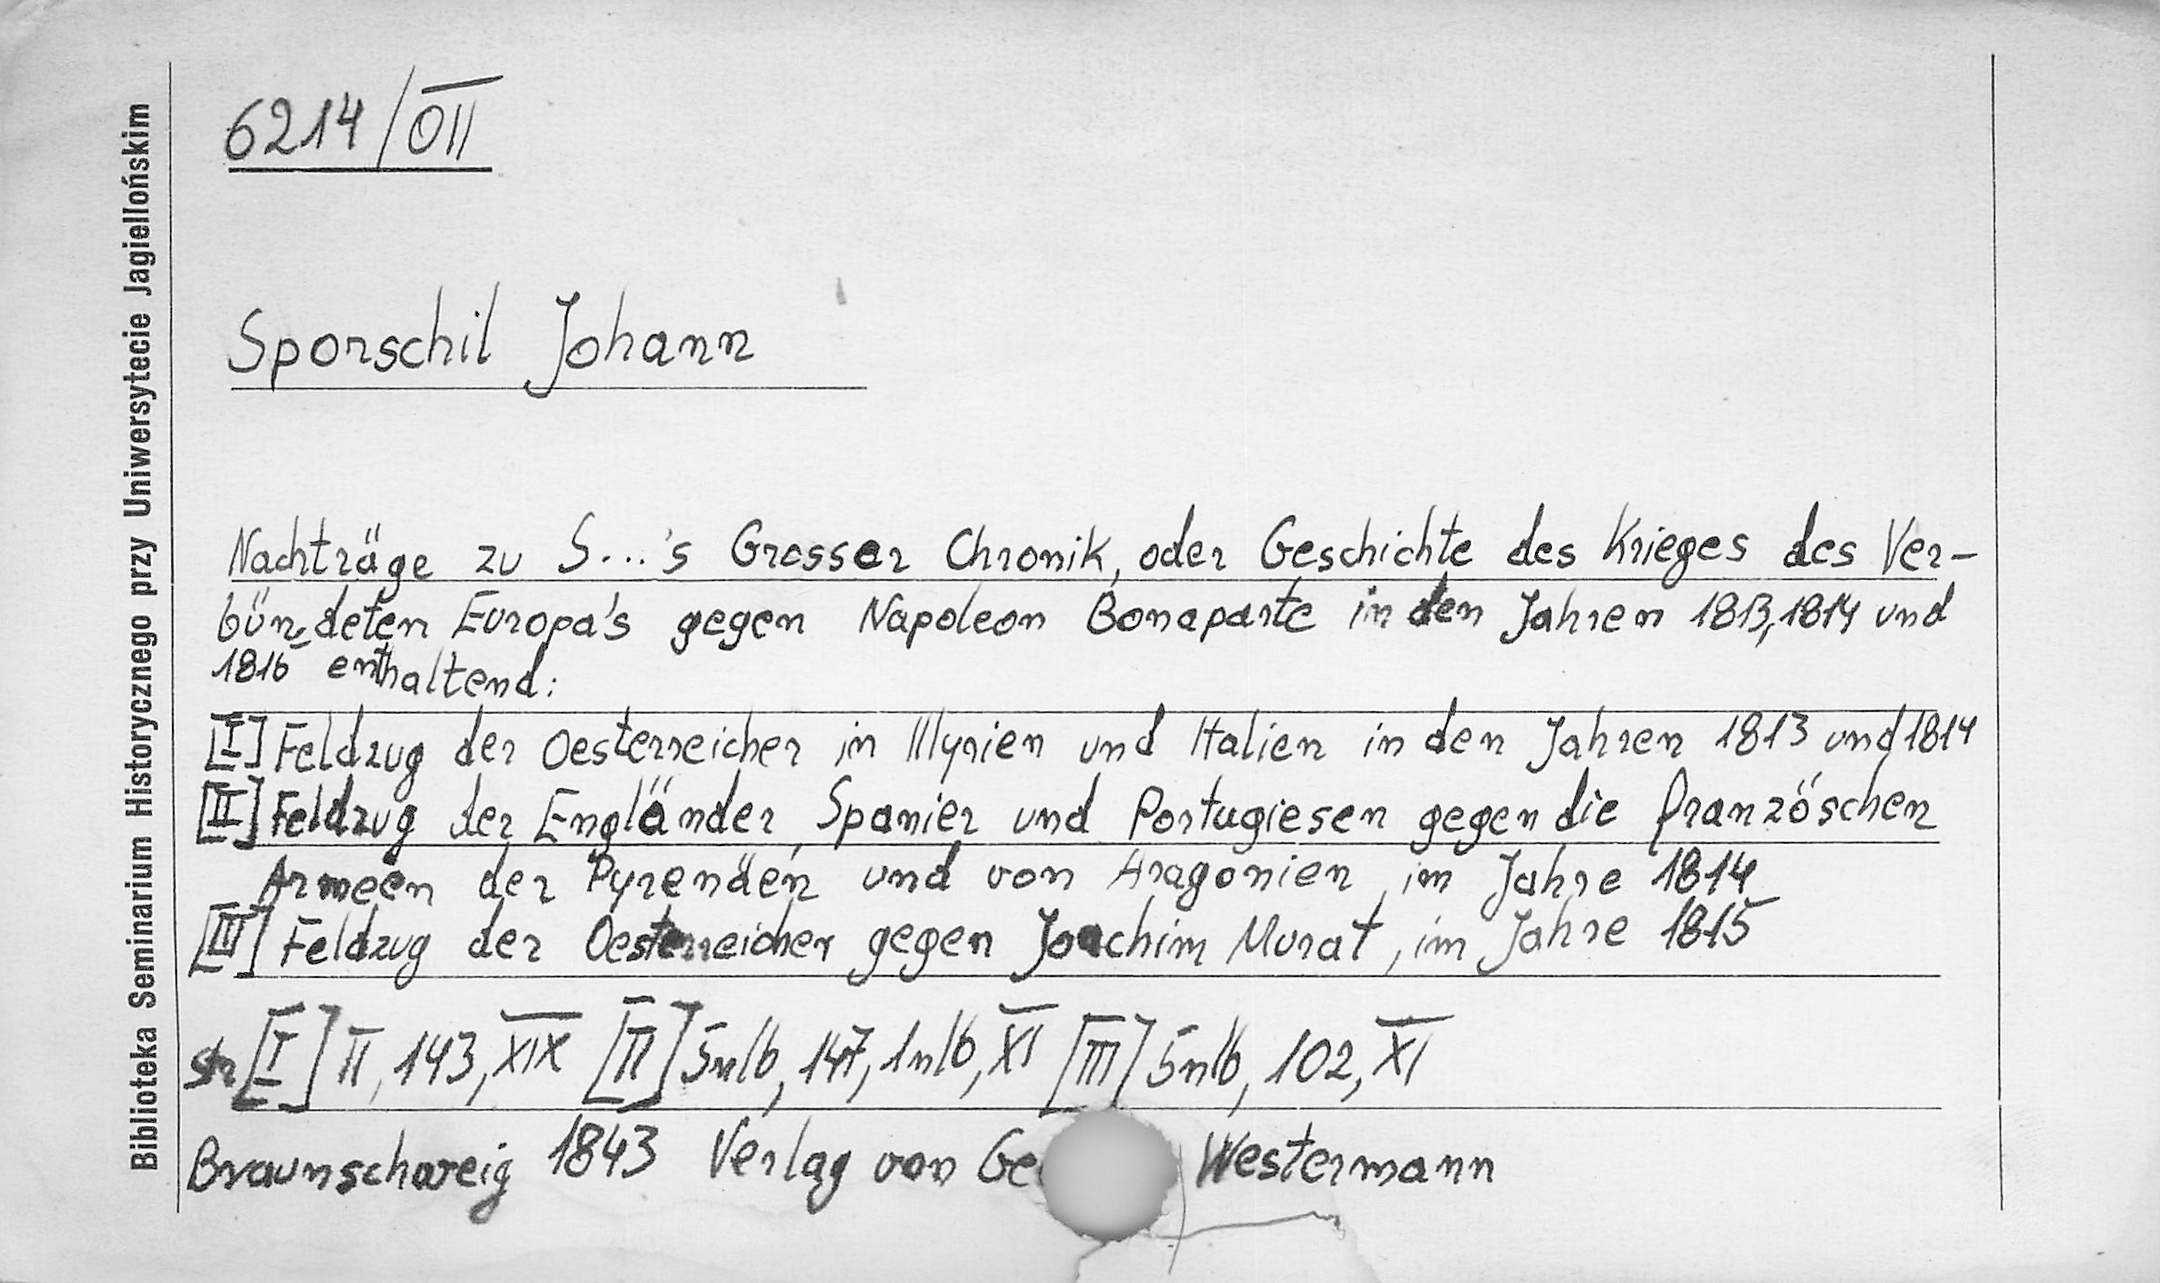 Biblioteka Seminarium Historycznego przy Uniwersytecie Jagiellońskim
6214/OII
Sporschil Johann
Nachträge zu S...'s Grosser Chronik, oder Geschichte des Krieges des Ver-
bündeten Europa's gegen Napoleon Bonaparte in den Jahren 1813, 1814 und
1816 enthaltend:
[I] Feldzug der Oesterreicher in Illyrien und Italien in den Jahren 1813 und 1814
[II] Feldzug der Engländer, Spanier und Portugiesen gegen die französchen
Armeen der Pyrenäen und von Aragonien, im Jahre 1814
[III] Feldzug der Oesterreicher gegen Joachim Murat, im Jahre 1815
str [I] II, 143, XIX [II] 5nlb, 147, 1nlb, XI [III] 5nlb, 102, XI
Braunschweig 1843 Verlag von Westermann